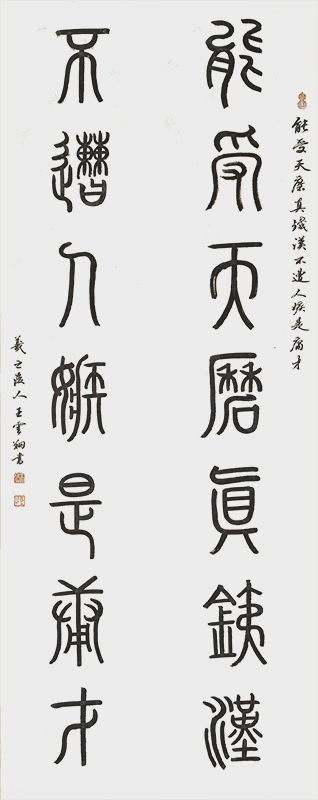 能受天磨真鐵漢不遭人嫉是庸才
能受天磨真銕漢
不遭人嫉是庸才
羲之後人王雲翔書